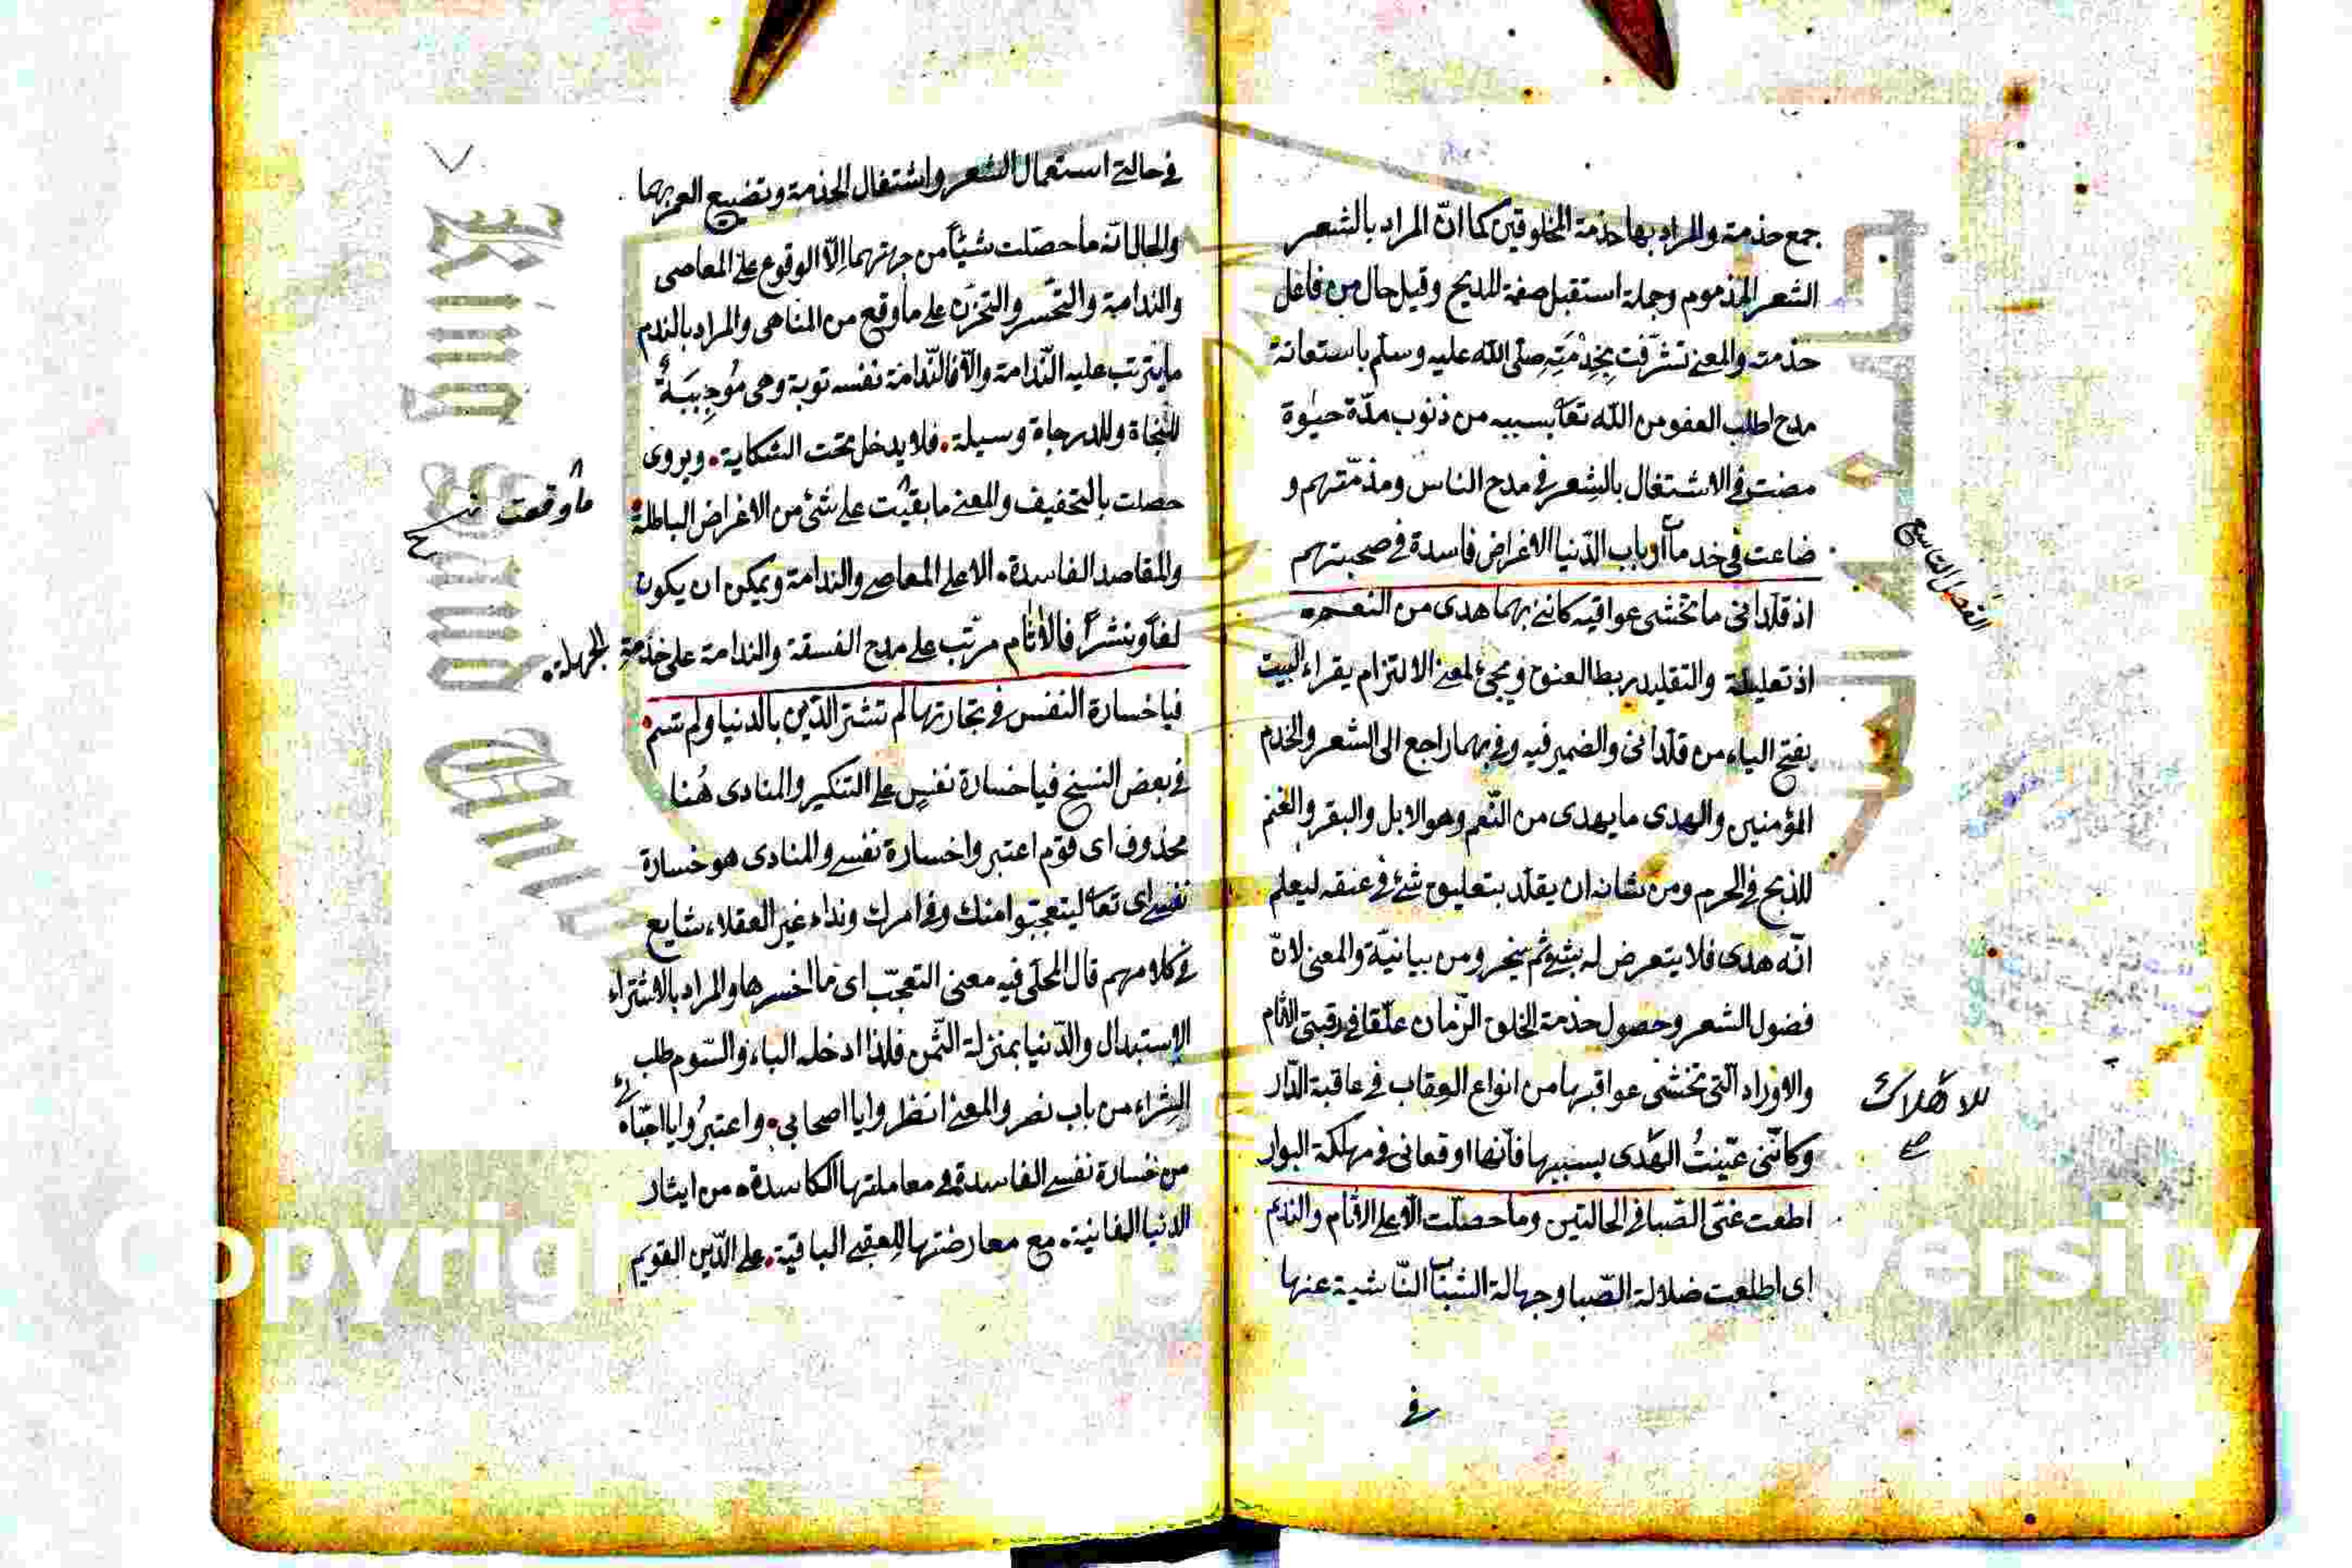 جمع خذمته والمراد بها خذمة المخلوقين كما انّ المراد بالشعر
الشعر المذموم وجملة استقبل صفة للمديح وقيل حال من فاعل
خذمته والمعنى تشرّفت بخِذْمَتِهِ صلّى الله عليه وسلّم باستعانة
مدح اطلب العفو من الله تعا بسببه من ذنوب مدّة حيٰوة
مضت في الاشتغال بالشعر في مدح الناس ومذمّتهم و
ضاعت في خدمات ارباب الدّنيا الاغراض فاسدة في صحبتهم
الفصل التاسع
اذ قلّدانى ما تخشى عواقبه كاننى بهما هدى من النعم
اذ تعليلية والتقليد ربط العنق ويجئ لمعنى الالتزام يقراء البيت
بفتح الياء من قلّدانى والضمير فيه وفى بهما راجع الى الشعر والخدم
المؤمنين والهدى ما يهدى من النّعم وهو الابل والبقر والغنم
للذبح في الحرم ومن شانه ان يقلّد بتعليق شئ في عنقه ليعلم
انّه هدى فلا يتعرض له بشئ ثم ينحر ومن بيانيّة والمعنى لانّ
فضول الشعر وحصول خذمة الخلق الزمان علّقا في رقبتى الاثام
والاوزار الّتى تخشى عواقبها من انواع العقاب في عاقبة الدّار
وكانّنى عيّنتُ الهَدى بسببها فانّهما اوقعانى في مهلكة البوار
للاهلاك
صح
اطعت غىّ الصّبا في الحالتين وما حصّلت الّا على الاثام والندم
اى اطعت ضلالة الصّبا وجهالة الشباب النّاشية عنها
في
في حالتى استعمال الشعر واشتغال الخذمة وتضييع العمر بهما
والحال انّه ما حصّلت شيئاً من جهتهما الّا الوقوع على المعاصى
والندامة والتحسر والتحزن على ما وقع من المناهى والمراد بالندم
ما يترتب عليه النّدامة والّا فالنّدامة نفسه توبة وهى مُوجِبَةٌ
للنجاة وللدرجاة وسيلة فلا يدخل تحت الشكاية ويروى
حصلت بالتخفيف والمعنى ما بقيت على شئ من الاغراض الباطلة
ما وقعت
والمقاصد الفاسدة الا على المعاصى والندامة ويمكن ان يكون
لفاً ونشراً فالاثام مرتب على مدح الفسقة والندامة على خذمةِ الجهلة
فيا خسارة النفس في تجارتها لم تشتر الدّين بالدنيا ولم تسم
في بعض النسخ فيا خسارة نفسٍ على التنكير والمنادى هُنا
محذوف اى قوم اعتبروا خسارة نفسى والمنادى هو خسارة
نفسى اى تعا ليتعجبوا منك وفى امرك ونداء غير العقلاء شايع
في كلامهم قال المحلّى فيه معنى التعجّب اى ما اخسرها والمراد بالاشتراء
الاستبدال والدّنيا بمنزلة الثّمن فلذا ادخله الباء والسّوم طلب
الشراء من باب نصر والمعنى انظروا يا اصحابي واعتبرُوا يا احبّائى
من خسارة نفسى الفاسدة في معاملتها الكاسدة من ايثار
الدنيا الفانية مع معارضتها للعقبى الباقية على الدّين القويم